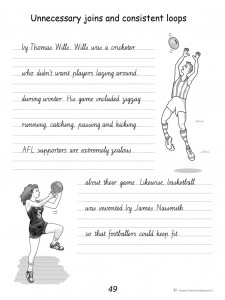 Unnecessary joins and consistent loops
by Thomas Wills. Wills was a cricketer
who didn't want players lazing around
during winter. His game included zigzag
running, catching, passing and kicking.
AFL supporters are extremely zealous
about their game. Likewise, basketball
was invented by James Naismith
so that footballers could keep fit.
49